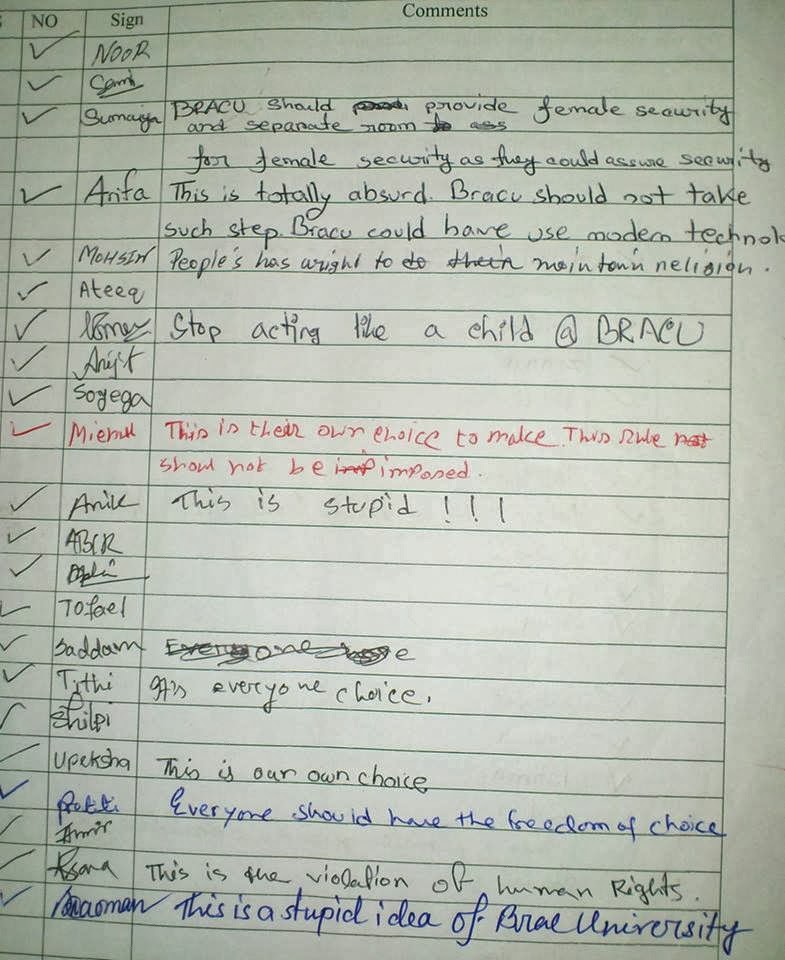 NO Sign Comments
✓ NOOR
✓ Sami
✓ Sumaiya BRACU should provide female security
and separate room to ass
for female security as they could assure security
✓ Arifa This is totally absurd. Bracu should not take
such step. Bracu could have use modern technol
✓ MOHSIN People's has wright to do their maintain religion.
✓ Ateeq
✓ Stop acting like a child @ BRACU
✓ Arijit
✓ Soyega
✓ This is their own choice to make. This rule not
shoul not be imp imposed.
✓ Anik This is stupid !!!
✓ ABIR
✓
✓ Tofael
✓ Saddam Everyone have
✓ Tithi It's everyone choice.
✓ Shilpi
✓ Upeksha This is our own choice
✓ Everyone should have the freedom of choice
✓ Amir
✓ This is the violation of human Rights.
✓ This is a stupid idea of Brac University